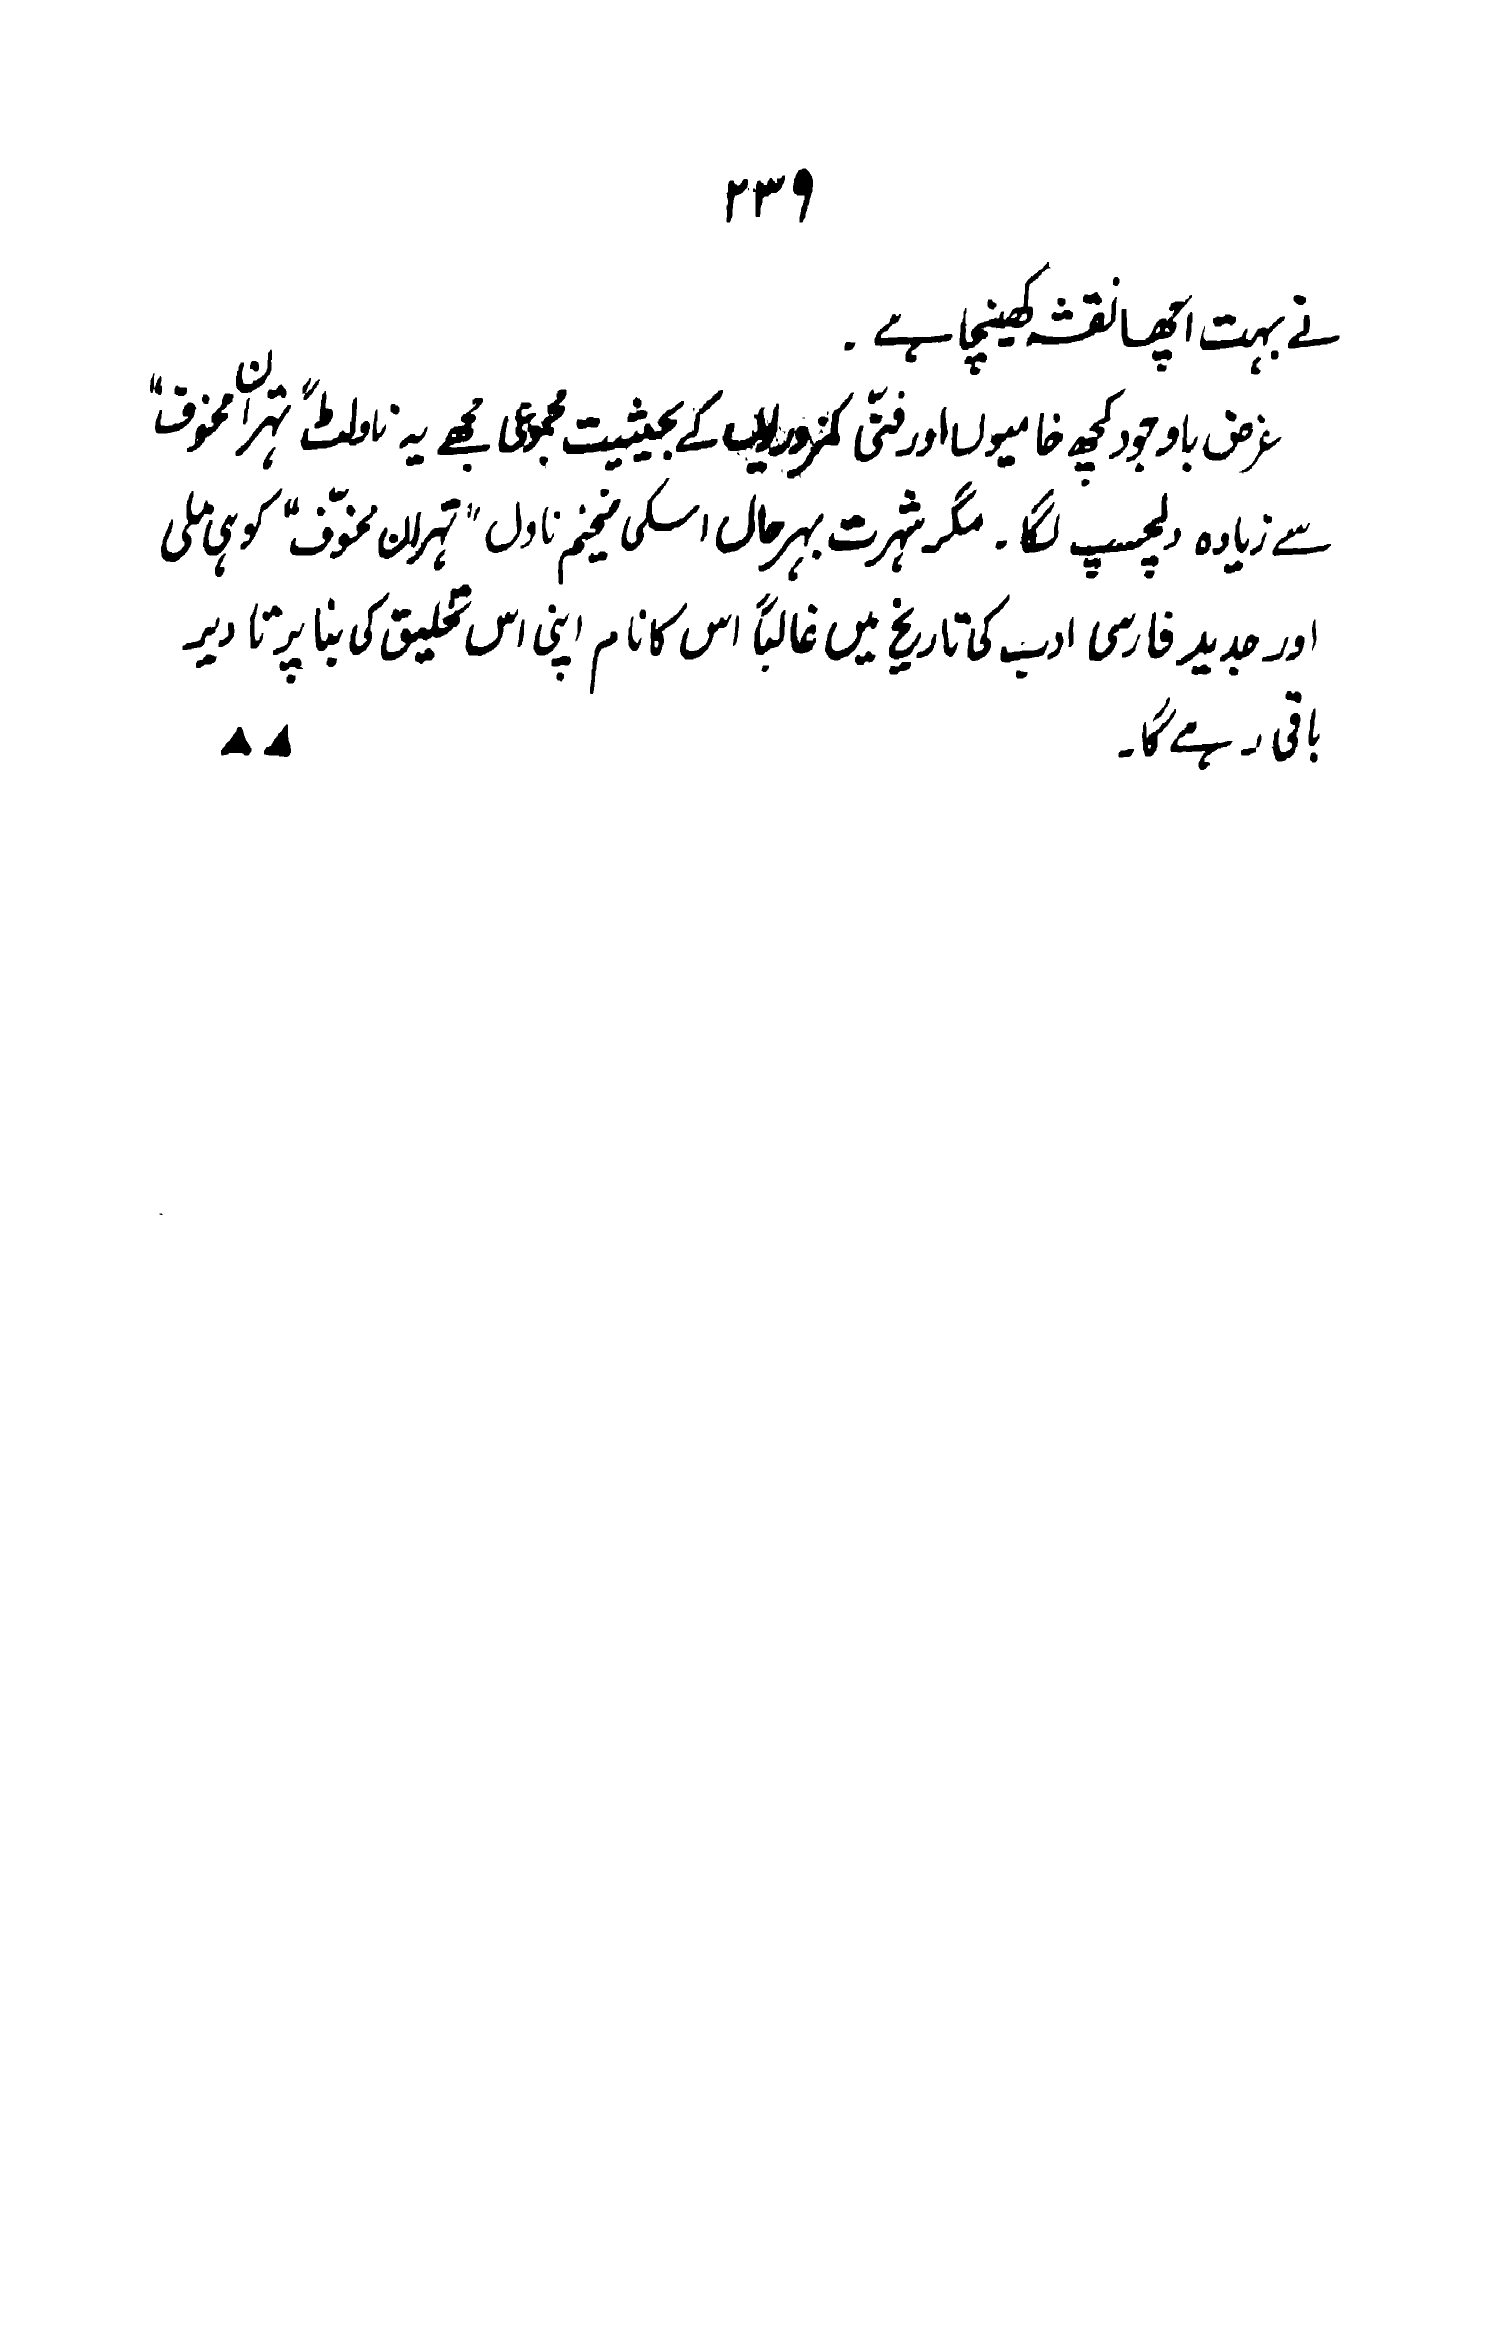 ۲۳۹
نے بہت اچھا نقشہ کھینچا ہے۔
غرض باوجود کچھ خامیوں اور فنّی کمزوریوں کے بحیثیت مجموعی مجھے یہ ناولٹ "تہران مخوف"
سے زیادہ دلچسپ لگا۔ مگر شہرت بہرحال اسکی ضخیم ناول "تہران مخوّف" کو ہی ملی
اور جدید فارسی ادب کی تاریخ میں غالباً اس کا نام اپنی اس تخلیق کی بنا پر تا دیر
باقی رہے گا۔ ▲▲